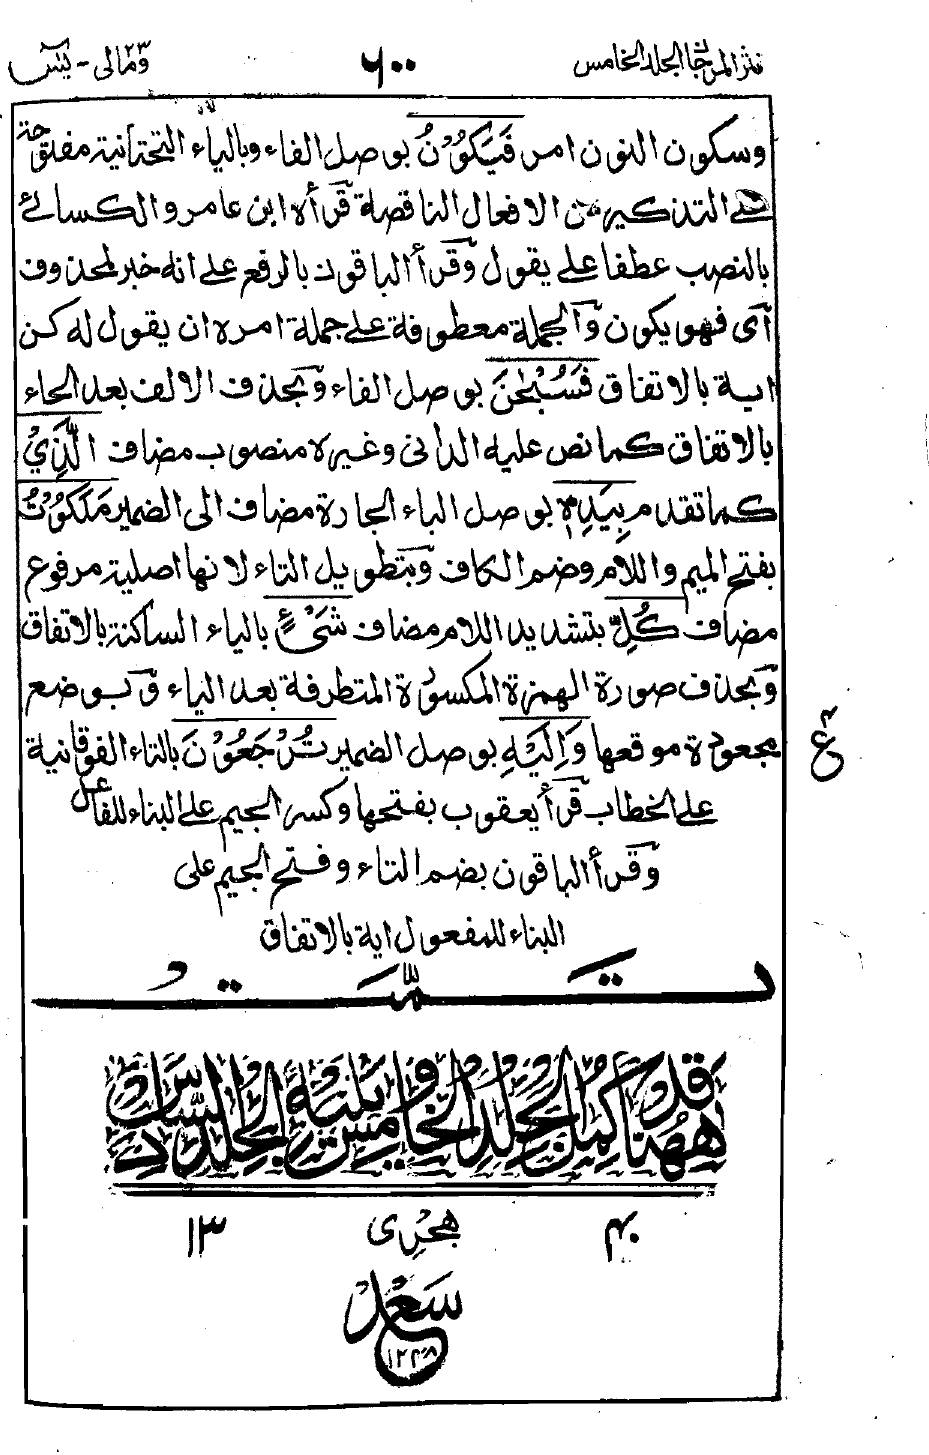 نثر المرجان الجلد الخامس
٦٠٠
ومالی ٢٣ - یٰسٓ
وسكون النون امر فَيَكُوْنُ بوصل الفاء وبالياء التحتانية مفتوحة
على التذكير من الافعال الناقصة قرأه ابن عامر والكسائے
بالنصب عطفا على يقول وقرأ الباقون بالرفع على انه خبر لمحذوف
اى فهو يكون والجملة معطوفة على جملة امره ان يقول له كن
اية بالاتفاق فَسُبْحٰنَ بوصل الفاء وبحذف الالف بعد الحاء
بالاتفاق كما نص عليه الدانى وغيره منصوب مضاف الَّذِيْ
كما تقدم بِيَدِهٖ بوصل الباء الجارة مضاف الى الضمير مَلَكُوْتُ
بفتح الميم واللام وضم الكاف وبتطويل التاء لانها اصلية مرفوع
مضاف كُلِّ بتشديد اللام مضاف شَيْءٍ بالياء الساكنة بالاتفاق
وبحذف صورة الهمزة المكسورة المتطرفة بعد الياء و بوضع
مجعودة موقعها وَاِلَيْهِ بوصل الضمير تُرْجَعُوْنَ بالتاء الفوقانية
ع
على الخطاب قرأ يعقوب بفتحها وكسر الجيم على البناء للفاعل
وقرأ الباقون بضم التاء وفتح الجيم على
البناء للمفعول اية بالاتفاق
تمت
قد وقع ههنا كمل الجلد الخامس ويليه الجلد السادس
هجری
١٣
سعد